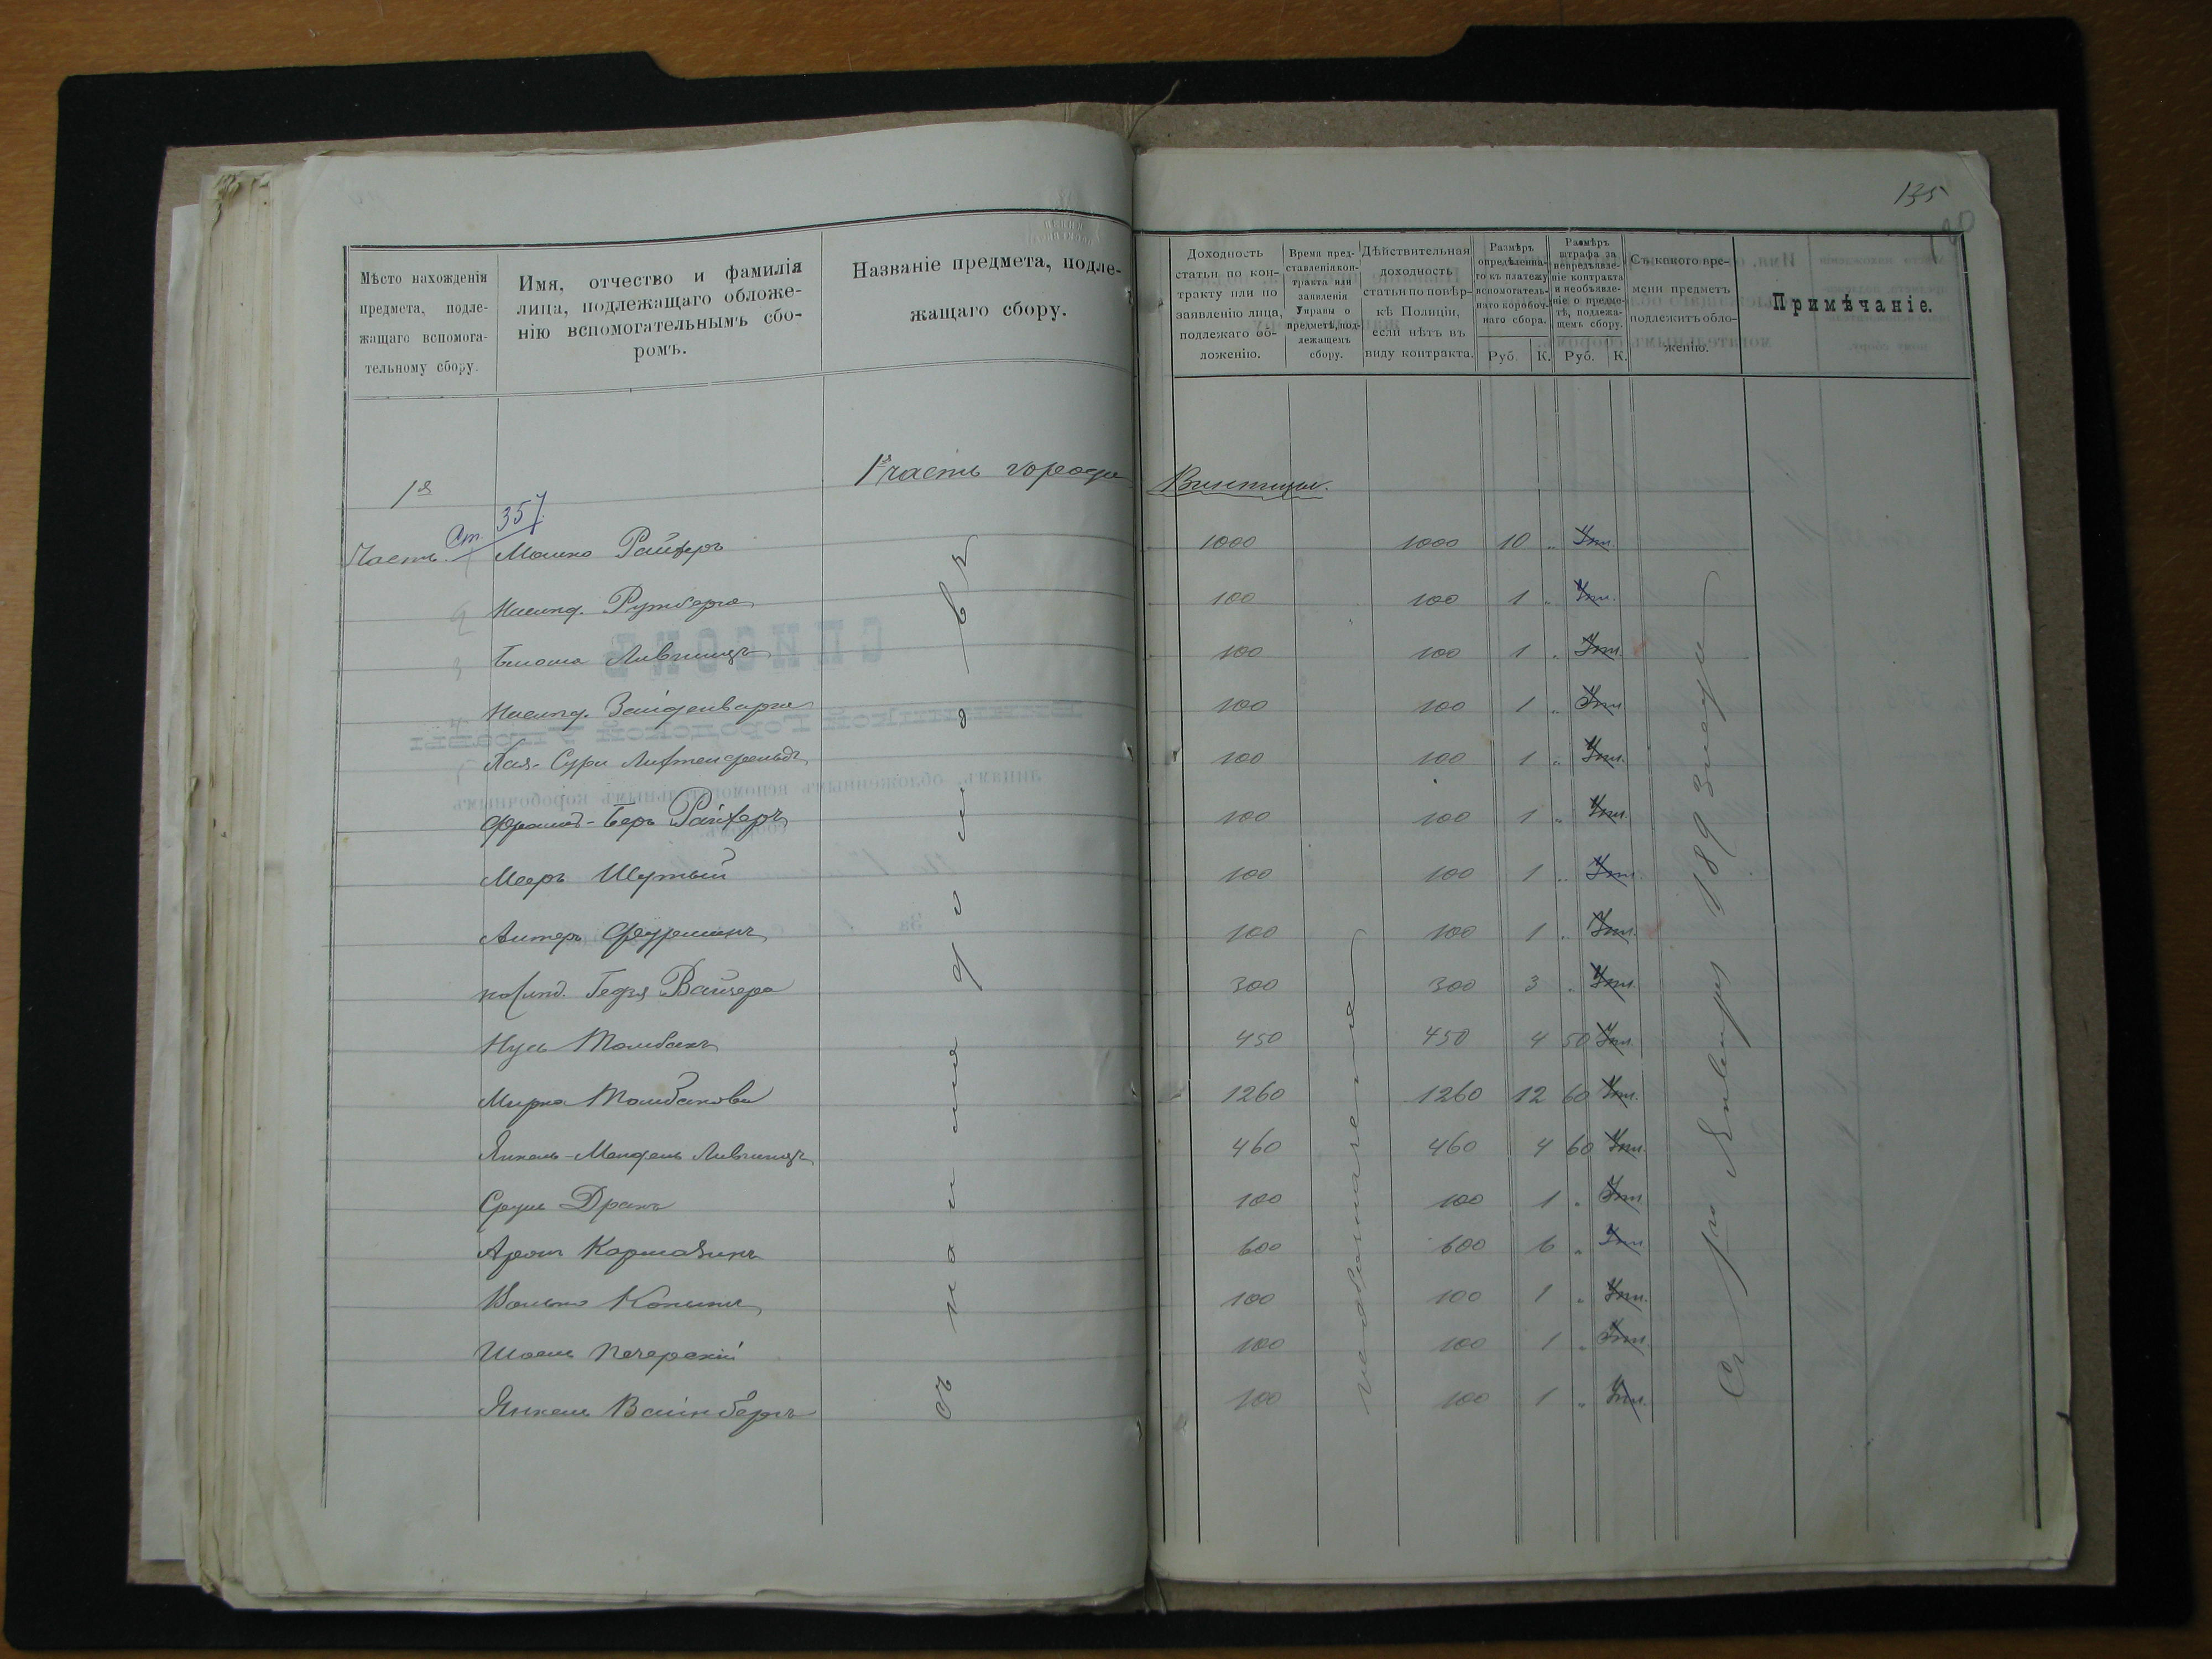 135
Мѣсто нахожденія предмета, подле-жащаго вспомога-тельному сбору.
Имя, отчество и фамилія лица, подлежащаго обложе-нію вспомогательнымъ сбо-ромъ.
Названіе предмета, подле-жащаго сбору.
Доходность статьи по кон-тракту или по заявленію лица, подлежаго об-ложенію.
Время пред-ставленія кон-тракта или заявленія Управы о предметѣ, под-лежащемъ сбору.
Дѣйствительная доходность статьи по повѣр-кѣ Полиціи, если нѣтъ въ виду контракта.
Размѣръ опредѣленна-го къ платежу вспомогатель-наго коробоч-наго сбора.
Руб. К.
Размѣръ штрафа за непредъявле-ніе контракта и необъявле-ніе о предме-тѣ, подлежа-щемъ сбору.
Руб. К.
Съ какого вре-мени предметъ подлежитъ обло-женію.
Примѣчаніе.
1я часть города Винницы.
1я
Часть
Ст. 357.
Мошко Райхеръ 1000 1000 10 "
Наслѣд. Рутберга 100 100 1 "
Лившицъ 100 100 1 "
Наслѣд. Зайденварга 100 100 1 "
Хая-Сура 100 100 1 "
Фроимъ-Беръ Райхеръ 100 100 1 "
Мееръ Шутый 100 100 1 "
100 100 1 "
Вайзера 300 300 3 "
Нусь Томбакъ 450 450 4 50
Мирка Томбакова 1260 1260 12 60
Янкель-Мендель Лившицъ 460 460 4 60
Сруль Дракъ 100 100 1 "
Аронъ Кармазинъ 600 600 6 "
Волько 100 100 1 "
Шоель Печерскій 100 100 1 "
Янкель Вайнберъ 100 100 1 "
Съ наемныхъ домовъ
Съ 1го Января 1893 года